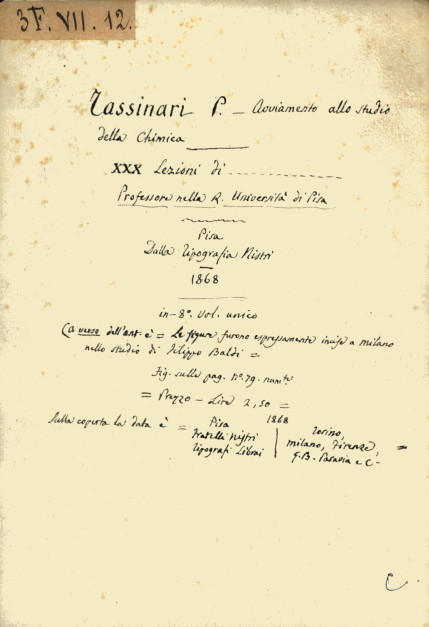 3F. VII. 12.
Tassinari P. — Avviamento allo studio
della Chimica
XXX Lezioni di
Professore nella R. Università di Pisa
Pisa
Dalla Tipografia Nistri
1868
in-8°. Vol. unico
(a verso dell'ant. è = Le figure furono espressamente incise a Milano
nello studio di Filippo Baldi =
Fig. sulle pag. N°. 79. num.te
= Prezzo — Lire 2,50 =
Sulla coperta la data è = Pisa 1868 Torino,
Fratelli Nistri Milano, Firenze, =
Tipografi Librai G.B. Paravia e C.
C.